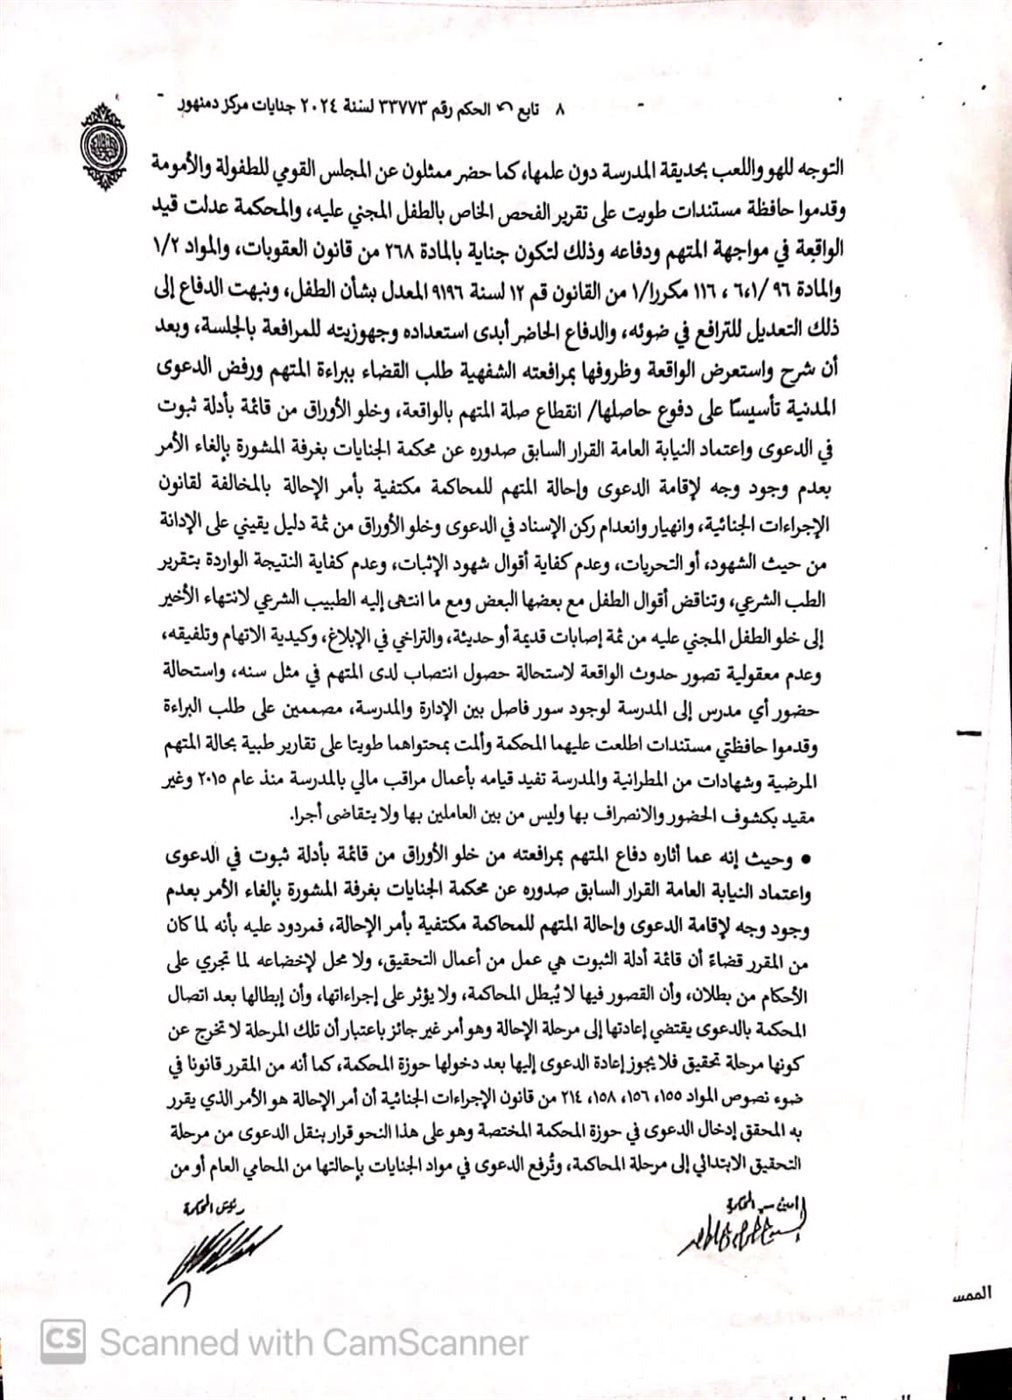 ٨ تابع الحكم رقم ٣٣٧٧٣ لسنة ٢٠٢٤ جنايات مركز دمنهور
التوجه للهو واللعب بحديقة المدرسة دون علمها، كما حضر ممثلون عن المجلس القومي للطفولة والأمومة
وقدموا حافظة مستندات طويت على تقرير الفحص الخاص بالطفل المجني عليه، والمحكمة عدلت قيد
الواقعة في مواجهة المتهم ودفاعه وذلك لتكون جناية بالمادة ٢٦٨ من قانون العقوبات، والمواد ١/٢
والمادة ٩٦ /٦،١ ، ١١٦ مكررا/١ من القانون قم ١٢ لسنة ٩١٩٦ المعدل بشأن الطفل، ونبهت الدفاع إلى
ذلك التعديل للترافع في ضوئه، والدفاع الحاضر أبدى استعداده وجهوزيته للمرافعة بالجلسة، وبعد
أن شرح واستعرض الواقعة وظروفها بمرافعته الشفهية طلب القضاء ببراءة المتهم ورفض الدعوى
المدنية تأسيسًا على دفوع حاصلها/ انقطاع صلة المتهم بالواقعة، وخلو الأوراق من قائمة بأدلة ثبوت
في الدعوى واعتماد النيابة العامة القرار السابق صدوره عن محكمة الجنايات بغرفة المشورة بإلغاء الأمر
بعدم وجود وجه لإقامة الدعوى وإحالة المتهم للمحاكمة مكتفية بأمر الإحالة بالمخالفة لقانون
الإجراءات الجنائية، وانهيار وانعدام ركن الإسناد في الدعوى وخلو الأوراق من ثمة دليل يقيني على الإدانة
من حيث الشهود، أو التحريات، وعدم كفاية أقوال شهود الإثبات، وعدم كفاية النتيجة الواردة بتقرير
الطب الشرعي، وتناقض أقوال الطفل مع بعضها البعض ومع ما انتهى إليه الطبيب الشرعي لانتهاء الأخير
إلى خلو الطفل المجني عليه من ثمة إصابات قديمة أو حديثة، والتراخي في الإبلاغ، وكيدية الاتهام وتلفيقه،
وعدم معقولية تصور حدوث الواقعة لاستحالة حصول انتصاب لدى المتهم في مثل سنه، واستحالة
حضور أي مدرس إلى المدرسة لوجود سور فاصل بين الإدارة والمدرسة، مصممين على طلب البراءة
وقدموا حافظتي مستندات اطلعت عليهما المحكمة وألمت بمحتواهما طويتا على تقارير طبية بحالة المتهم
المرضية وشهادات من المطرانية والمدرسة تفيد قيامه بأعمال مراقب مالي بالمدرسة منذ عام ٢٠١٥ وغير
مقيد بكشوف الحضور والانصراف بها وليس من بين العاملين بها ولا يتقاضى أجرا.
• وحيث إنه عما أثاره دفاع المتهم بمرافعته من خلو الأوراق من قائمة بأدلة ثبوت في الدعوى
واعتماد النيابة العامة القرار السابق صدوره عن محكمة الجنايات بغرفة المشورة بإلغاء الأمر بعدم
وجود وجه لإقامة الدعوى وإحالة المتهم للمحاكمة مكتفية بأمر الإحالة، فمردود عليه بأنه لما كان
من المقرر قضاءً أن قائمة أدلة الثبوت هي عمل من أعمال التحقيق، ولا محل لإخضاعه لما تجري على
الأحكام من بطلان، وأن القصور فيها لا يُبطل المحاكمة، ولا يؤثر على إجراءاتها، وأن إبطالها بعد اتصال
المحكمة بالدعوى يقتضي إعادتها إلى مرحلة الإحالة وهو أمر غير جائز باعتبار أن تلك المرحلة لا تخرج عن
كونها مرحلة تحقيق فلا يجوز إعادة الدعوى إليها بعد دخولها حوزة المحكمة، كما أنه من المقرر قانونا في
ضوء نصوص المواد ١٥٥، ١٥٦، ١٥٨، ٢١٤ من قانون الإجراءات الجنائية أن أمر الإحالة هو الأمر الذي يقرر
به المحقق إدخال الدعوى في حوزة المحكمة المختصة وهو على هذا النحو قرار بنقل الدعوى من مرحلة
التحقيق الابتدائي إلى مرحلة المحاكمة، وتُرفع الدعوى في مواد الجنايات بإحالتها من المحامي العام أو من
أمين سر المحكمة
رئيس المحكمة
الممس
CS Scanned with CamScanner